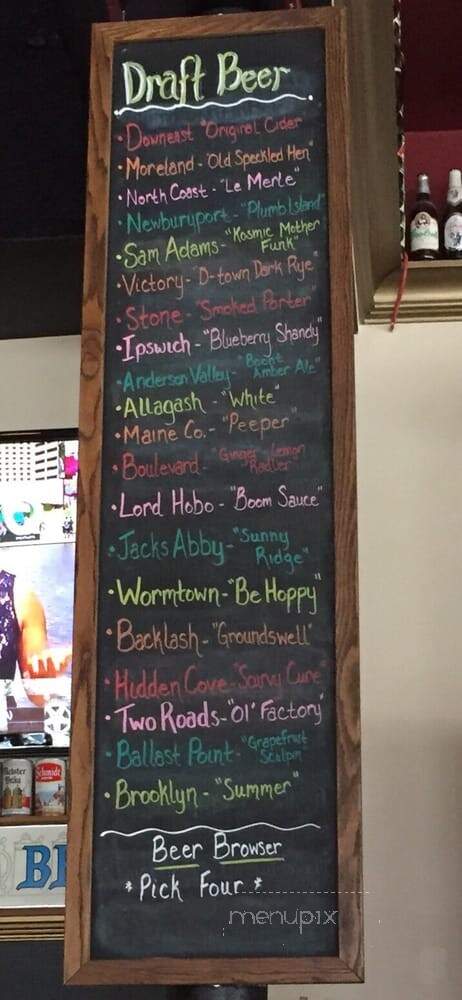 Draft Beer
•Downeast "Original Cider
•Moreland - "Old Speckled Hen"
•North Coast - "Le Merle"
•Newburyport - "Plumb Island"
•Sam Adams - "Kosmic Mother
Funk"
•Victory - "D-town Dark Rye"
•Stone - "Smoked Porter"
•Ipswich - "Blueberry Shandy"
•Anderson Valley - "Boont
Amber Ale"
•Allagash - "White"
•Maine Co. - "Peeper"
•Boulevard - "Ginger-Lemon
Radler"
•Lord Hobo - "Boom Sauce"
•Jacks Abby - "Sunny
Ridge"
•Wormtown - "Be Hoppy"
•Backlash - "Groundswell"
•Hidden Cove - "Scurvy Cure"
•Two Roads - "Ol' Factory"
•Ballast Point - "Grapefruit
Sculpin"
•Brooklyn - "Summer"
Beer Browser
*Pick Four*
menupix
Schmidt